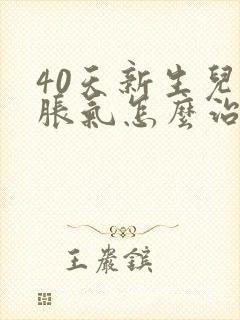 40天新生兒
脹氣怎麼治
王嚴鎮